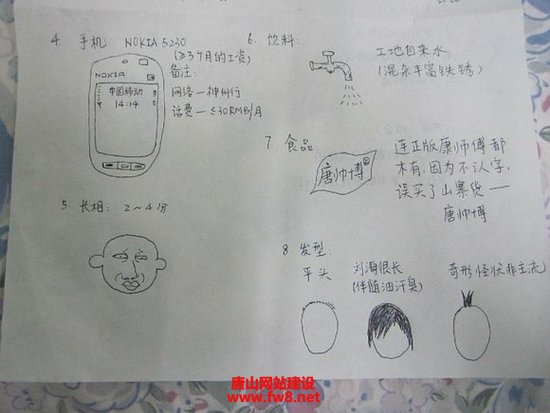 4. 手机 NOKIA 5230
(≥3个月的工资)
备注:
网络—神州行
话费—≤30RMB/月
NOKIA
中国移动
14:14
5. 长相: 2~4分
6. 饮料
工地自来水
(混杂丰富铁锈)
7. 食品:
唐帅博®
连正版康师傅都
木有,因为不认字,
误买了山寨货——
唐帅博
8. 发型
平头
刘海很长
(伴随油汗臭)
奇形怪状非主流
唐山网站建设
www.fw8.net